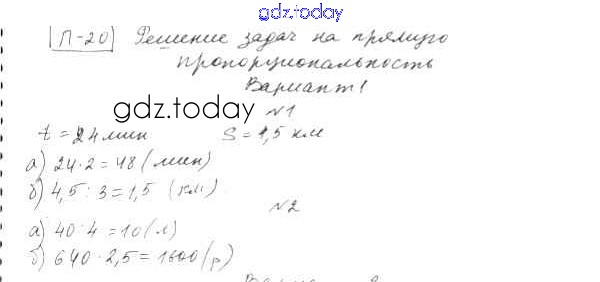 gdz.today
П-20 Решение задач на прямую
пропорциональность
Вариант 1
gdz.today
№1
t = 24 мин S = 4,5 км
а) 24·2=48 (мин)
б) 4,5:3=1,5 (км)
№2
а) 40:4=10 (л)
б) 640·2,5=1600 (р)